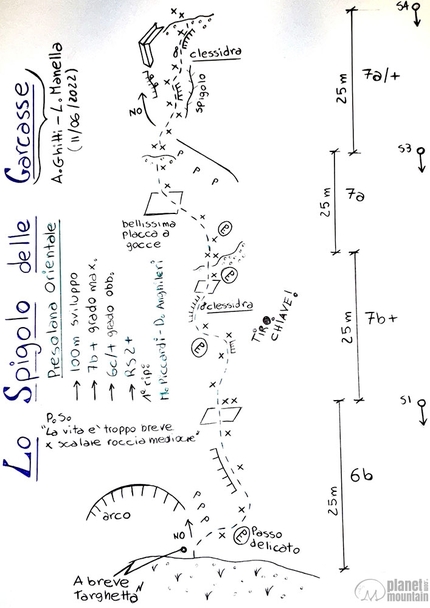 Lo Spigolo delle Garcasse
Presolana Orientale
A. Ghitti - L. Manella
(11/06/2022)
→ 100m sviluppo
→ 7b+ grado max.
→ 6c/+ grado obb.
→ RS2+
1ª rip:
M. Piccardi - D. Anghileri
P.S.
"La vita è troppo breve
x scalare roccia mediocre"
S4
25m
7a/+
clessidra
spigolo
NO
S3
25m
7a
bellissima
placca a
gocce
P
clessidra
TIRO
CHIAVE!
25m
7b+
S1
25m
6b
arco
NO
P
Passo
delicato
A breve
Targhetta
planet
mountain